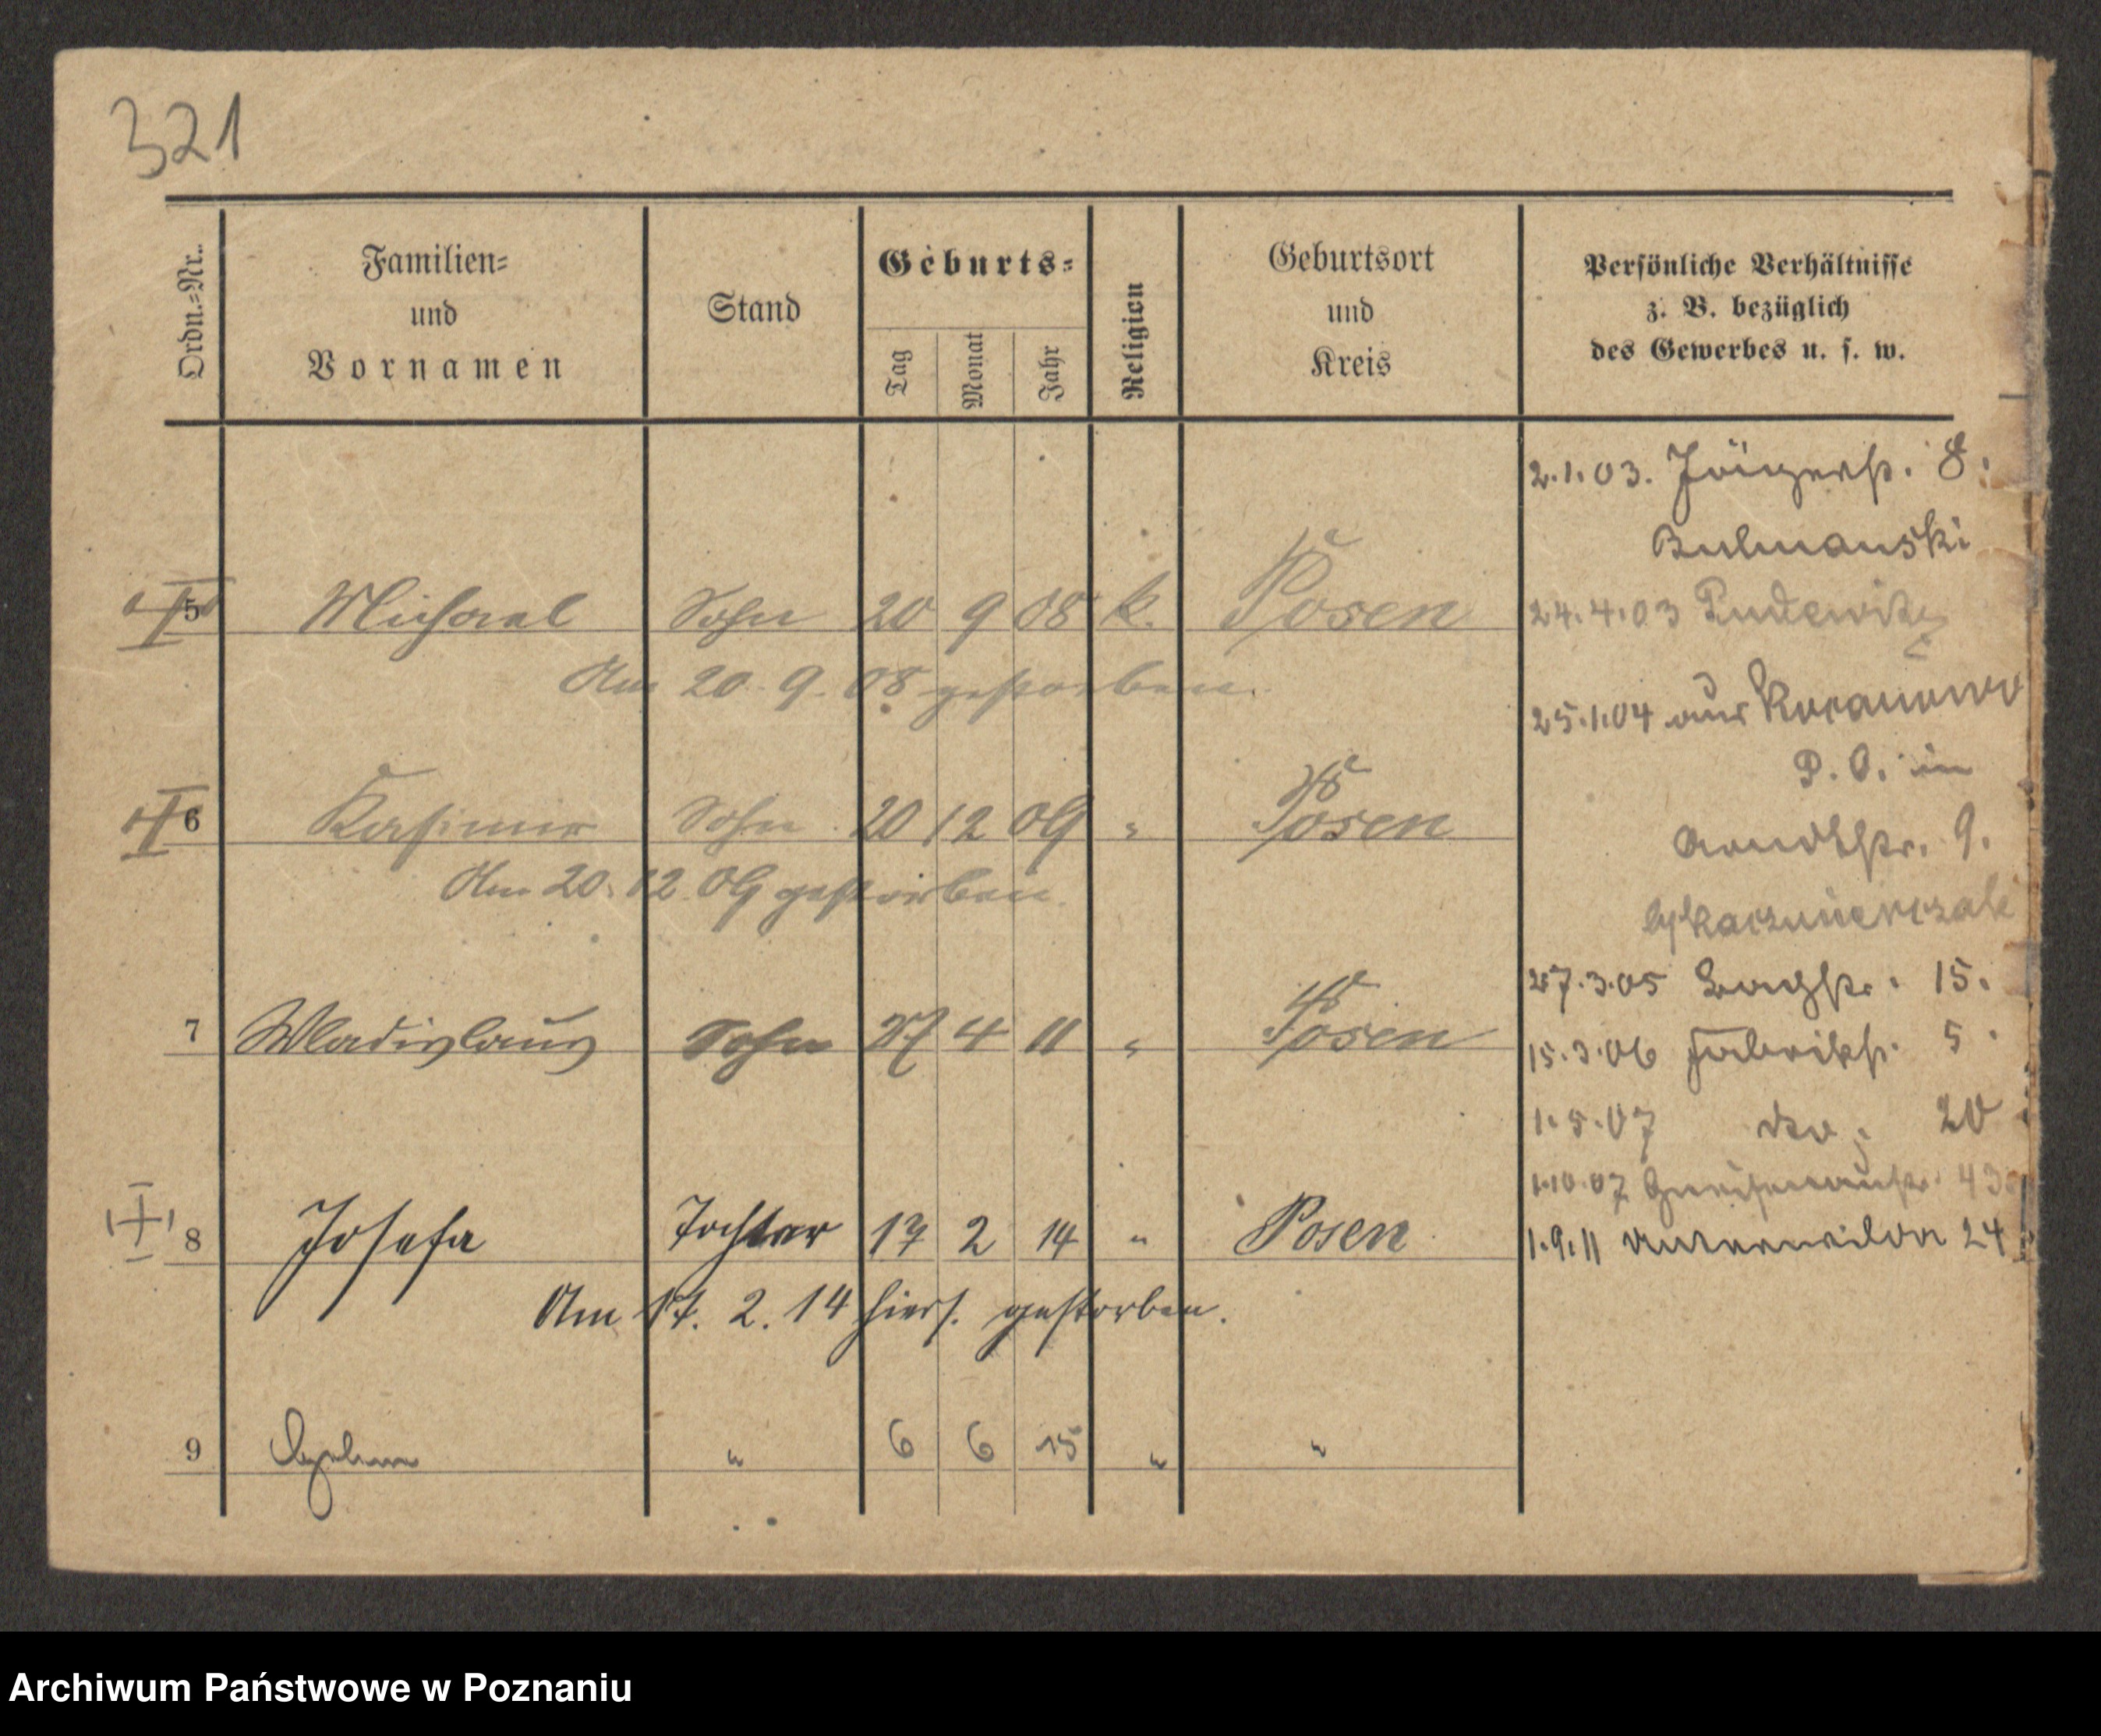 321
Ordn.=Nr.
Familien=
und
Vornamen
Stand
Geburts=
Tag
Monat
Jahr
Religion
Geburtsort
und
Kreis
Persönliche Verhältnisse
z. B. bezüglich
des Gewerbes u. s. w.
2.1.03. Jägerstr. 8.
5 Michael Sohn 20 9 08 k. Posen
24.4.03 Pudewitz
Am 20.9.08 gestorben.
25.1.04 aus
P. O. in
6 Kasimir Sohn 20 12 09 " Posen
Arndtstr. 9.
Am 20.12.09 gestorben.
27.3.05 Bachstr. 15.
7 Wladislaus Sohn 27 4 11 " Posen
15.3.06 Fabrikstr. 5.
1.5.07 dto. 20
1.10.07 Gneisenaustr. 43
8 Josefa Tochter 17 2 14 " Posen
1.9.11 Unterwilda 24
Am 17. 2. 14 hiers. gestorben.
9 " 6 6 15 " "
Archiwum Państwowe w Poznaniu